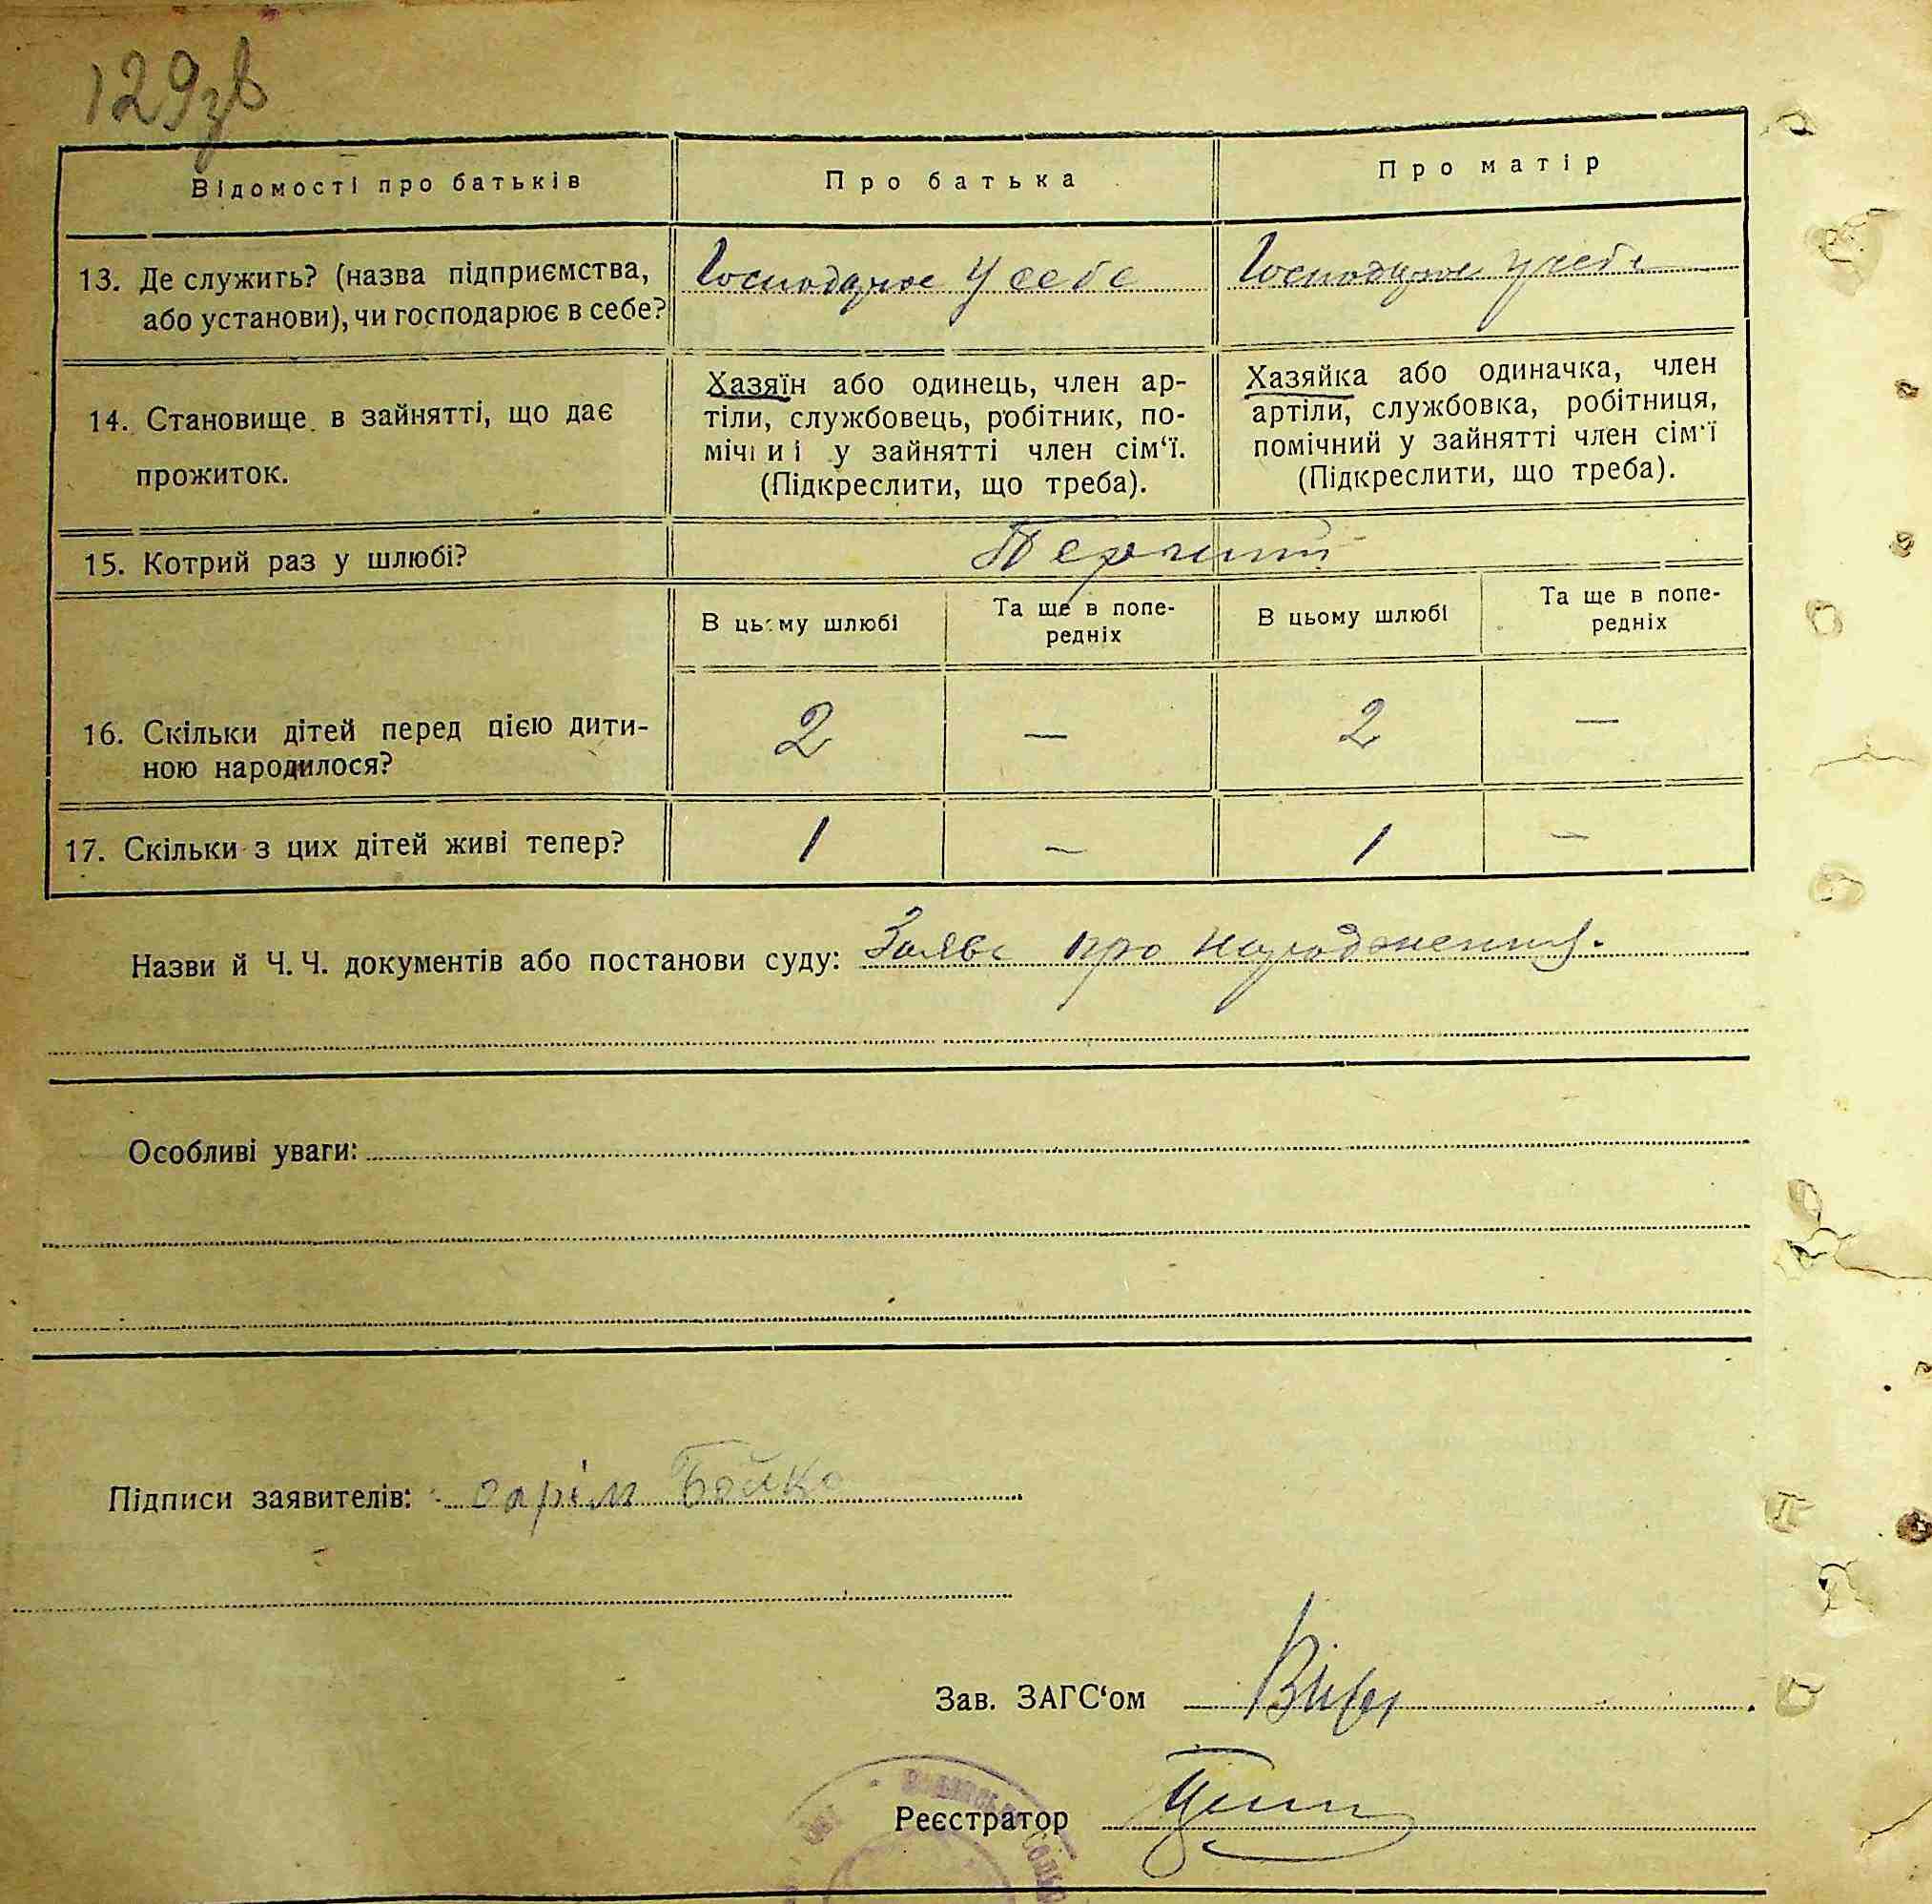 129зв
Відомості про батьків
Про батька
Про матір
13. Де служить? (назва підприємства,
або установи), чи господарює в себе?
Господарює у себе
Господарює у себе
14. Становище в зайнятті, що дає
прожиток.
Хазяїн або одинець, член ар-
тіли, службовець, робітник, по-
мічний у зайнятті член сім‘ї.
(Підкреслити, що треба).
Хазяйка або одиначка, член
артіли, службовка, робітниця,
помічний у зайнятті член сім‘ї
(Підкреслити, що треба).
15. Котрий раз у шлюбі?
Перший
В цьому шлюбі
Та ще в попе-
редніх
В цьому шлюбі
Та ще в попе-
редніх
16. Скільки дітей перед цією дити-
ною народилося?
2 — 2 —
17. Скільки з цих дітей живі тепер?
1 — 1 —
Назви й Ч. Ч. документів або постанови суду: Заява про народження.
Особливі уваги:
Підписи заявителів: Бойко
Зав. ЗАГС‘ом
Реєстратор